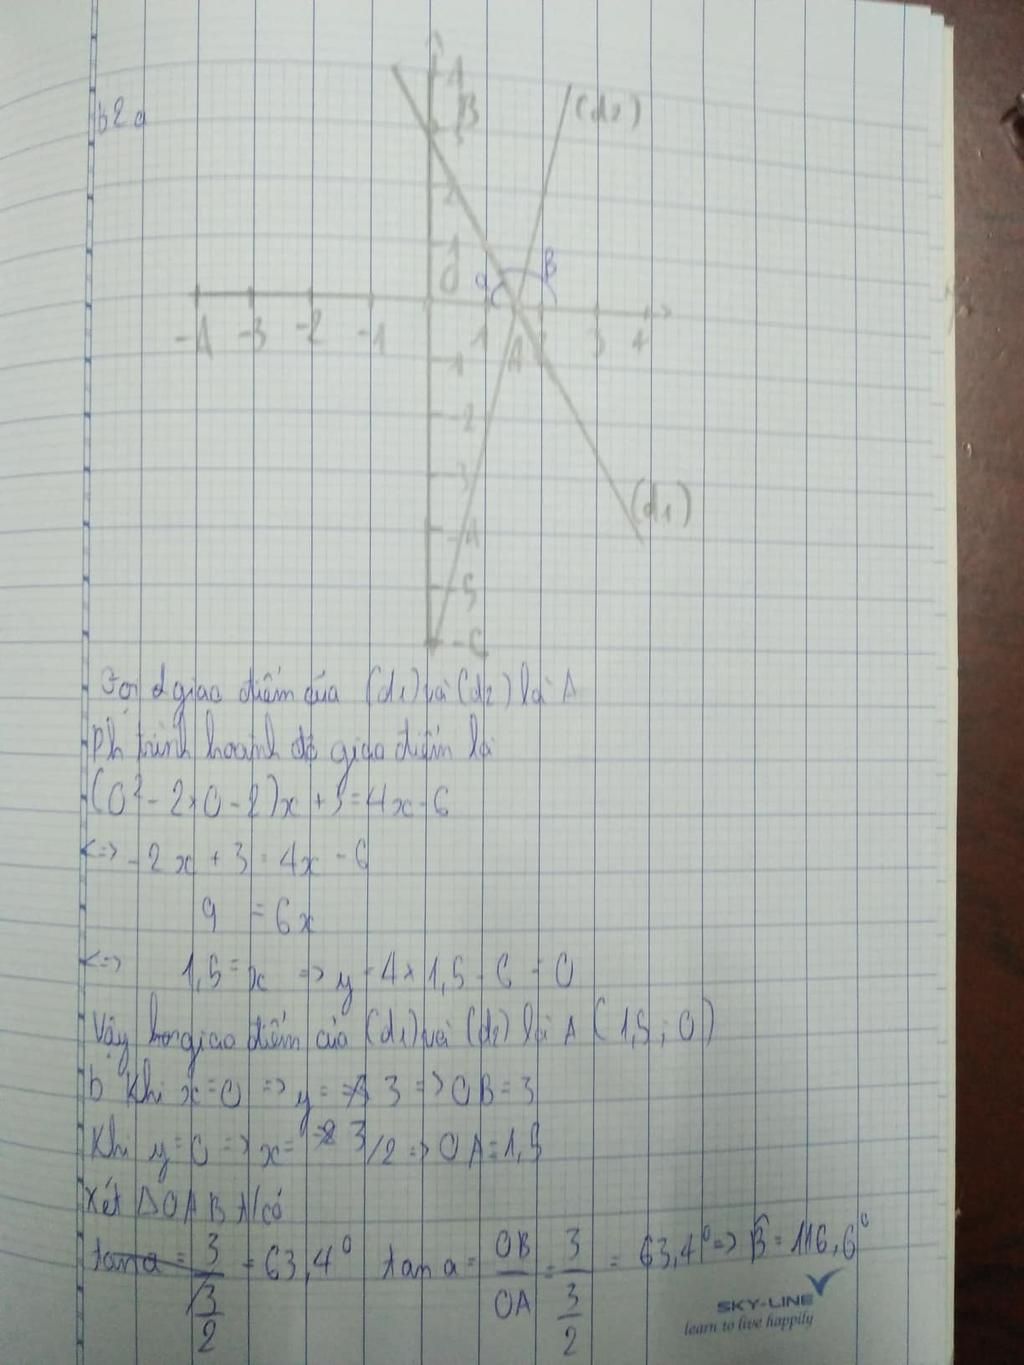 b2a
4
B
3
(d2)
2
1
O
a
B
-4 -3 -2 -1 1 A 2 3 4
-1
-2
3
(d1)
-4
-5
-6
Gọi giao điểm của (d1) và (d2) là A
Ph trình hoành độ giao điểm là
(0² - 2×0 - 2)x + 3 = 4x - 6
<=> -2x + 3 = 4x - 6
9 = 6x
<=> 1,5 = x => y = 4×1,5 - 6 = 0
Vậy giao điểm của (d1) và (d2) là A (1,5 ; 0)
b Khi x = 0 => y = 3 => OB = 3
Khi y = 0 => x = 3/2 => OA = 1,5
Xét ΔOAB có
tan a = 3/(3/2) = 63,4° tan a = OB/OA = 3/(3/2) = 63,4° => B̂ = 116,6°
SKY-LINE
learn to live happily